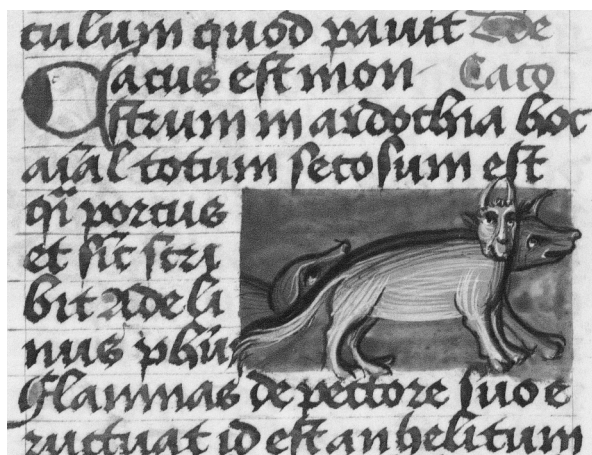 culum quod pavit De
Cacus est mon- Caco
strum in ardochia hoc
aīal totum setosum est
qī porcus
et sīc scri
bit Adeli
nus ph̄us
Flammas de pectore suo e
ructuat id est anhelitum